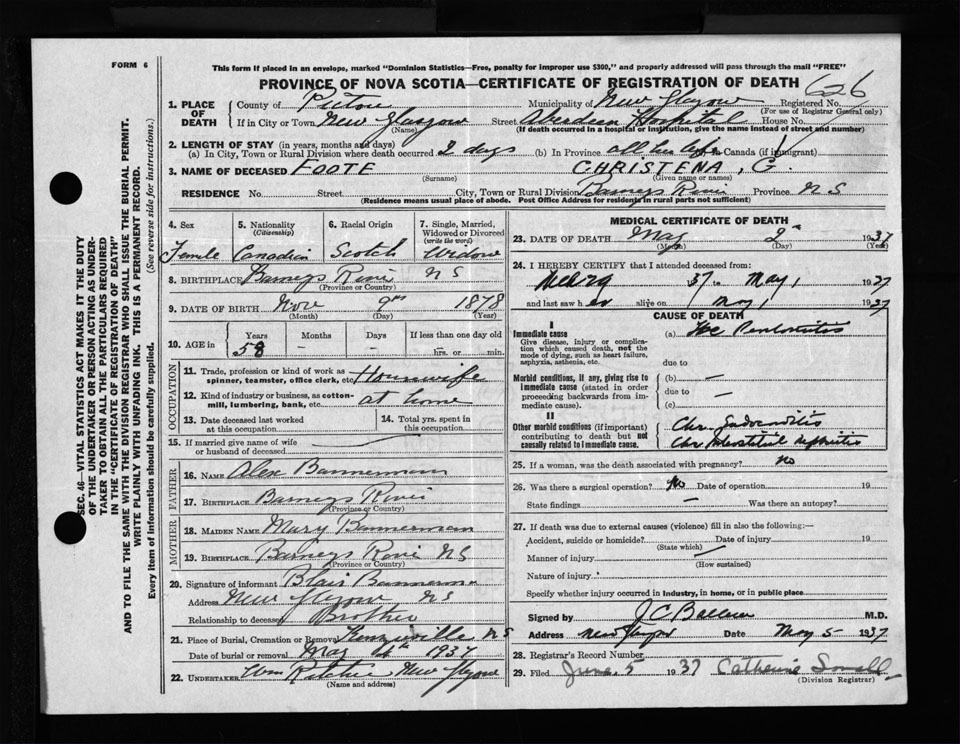 FORM 6
This form if placed in an envelope, marked "Dominion Statistics—Free, penalty for improper use $300," and properly addressed will pass through the mail "FREE"
PROVINCE OF NOVA SCOTIA—CERTIFICATE OF REGISTRATION OF DEATH
626
1. PLACE OF DEATH
County of Pictou Municipality of New Glasgow Registered No.
(For use of Registrar General only)
If in City or Town New Glasgow Street Aberdeen Hospital House No.
(Name) (If death occurred in a hospital or institution, give the name instead of street and number)
2. LENGTH OF STAY (in years, months and days)
(a) In City, Town or Rural Division where death occurred 2 days (b) In Province all her life In Canada (if immigrant)
3. NAME OF DECEASED FOOTE CHRISTENA, G.
(Surname) (Given name or names)
RESIDENCE No. Street City, Town or Rural Division Barneys River Province N S
(Residence means usual place of abode. Post Office Address for residents in rural parts not sufficient)
4. Sex 5. Nationality (Citizenship) 6. Racial Origin 7. Single, Married, Widowed or Divorced (write the word)
Female Canadian Scotch Widow
8. BIRTHPLACE Barneys River N S
(Province or Country)
9. DATE OF BIRTH Nov 9th 1878
(Month) (Day) (Year)
10. AGE in Years Months Days If less than one day old
58 – – hrs. or min.
OCCUPATION
11. Trade, profession or kind of work as spinner, teamster, office clerk, etc. Housewife
12. Kind of industry or business, as cotton-mill, lumbering, bank, etc. at home
13. Date deceased last worked at this occupation 14. Total yrs. spent in this occupation
15. If married give name of wife or husband of deceased
FATHER
16. NAME Alex Bannerman
17. BIRTHPLACE Barneys River
(Province or Country)
MOTHER
18. MAIDEN NAME Mary Bannerman
19. BIRTHPLACE Barneys River N S
(Province or Country)
20. Signature of informant Blair Bannerman
Address New Glasgow N S
Relationship to deceased Brother
21. Place of Burial, Cremation or Removal Kenzieville N S
Date of burial or removal May 4th 1937
22. UNDERTAKER Wm New Glasgow
(Name and address)
MEDICAL CERTIFICATE OF DEATH
23. DATE OF DEATH May 2nd 1937
(Month) (Day) (Year)
24. I HEREBY CERTIFY that I attended deceased from:
37 to May 1 1937
and last saw her alive on May 1 1937
CAUSE OF DEATH
I
Immediate cause
Give disease, injury or complication which caused death, not the mode of dying, such as heart failure, asphyxia, asthenia, etc.
(a)
due to
Morbid conditions, if any, giving rise to immediate cause (stated in order proceeding backwards from immediate cause).
(b) —
due to —
(c)
II
Other morbid conditions (if important) contributing to death but not causally related to immediate cause.
Chr. Endocarditis
Chr. Interstitial nephritis
25. If a woman, was the death associated with pregnancy? no
26. Was there a surgical operation? No Date of operation 19
State findings Was there an autopsy?
27. If death was due to external causes (violence) fill in also the following:—
Accident, suicide or homicide? Date of injury 19
(State which)
Manner of injury
(How sustained)
Nature of injury
Specify whether injury occurred in Industry, in home, or in public place
Signed by J C M.D.
Address New Glasgow Date May 5 1937
28. Registrar's Record Number
29. Filed June 5 1937 Catherine
(Division Registrar)
SEC. 46—VITAL STATISTICS ACT MAKES IT THE DUTY
OF THE UNDERTAKER OR PERSON ACTING AS UNDER-
TAKER TO OBTAIN ALL THE PARTICULARS REQUIRED
IN THE "CERTIFICATE OF REGISTRATION OF DEATH"
AND TO FILE THE SAME WITH THE DIVISION REGISTRAR WHO SHALL ISSUE THE BURIAL PERMIT.
WRITE PLAINLY WITH UNFADING INK. THIS IS A PERMANENT RECORD.
Every item of information should be carefully supplied. (See reverse side for instructions.)